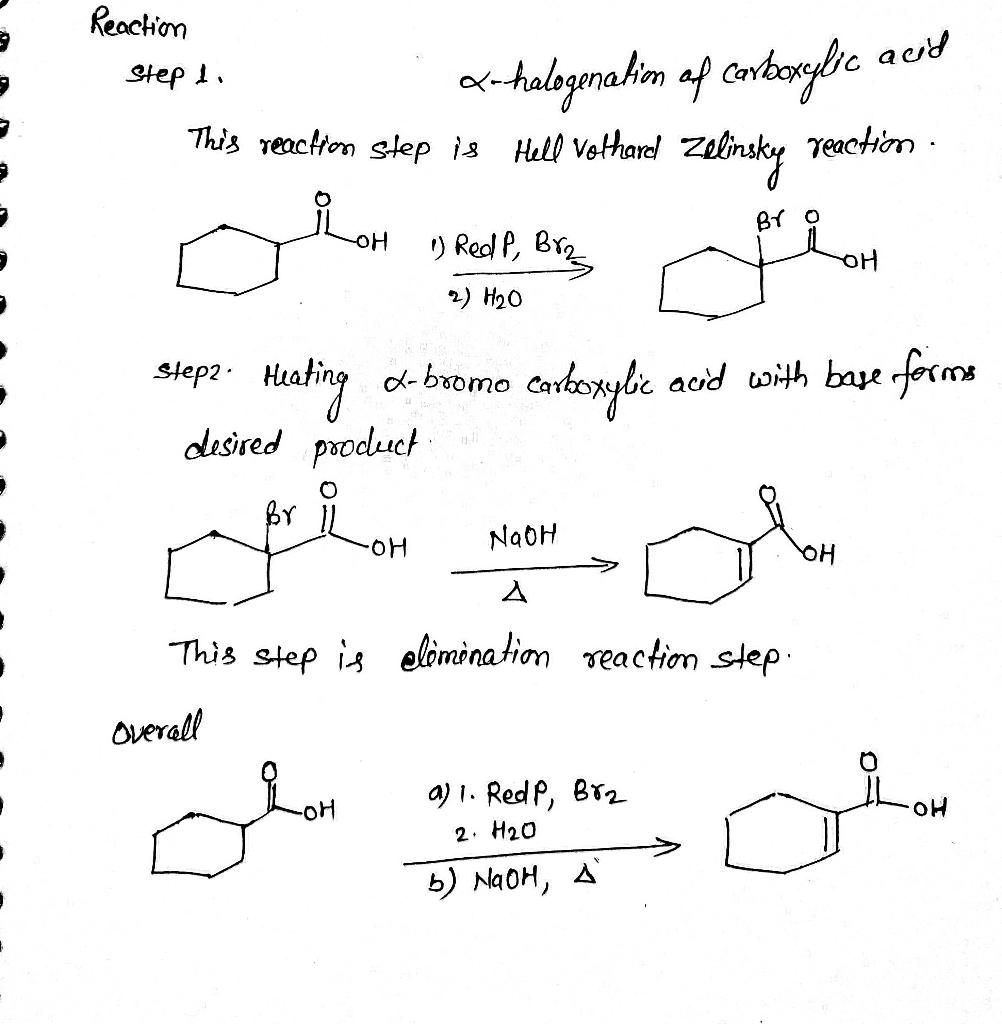 Reaction
Step 1.
α-halogenation of carboxylic acid
This reaction step is Hell Vothard Zelinsky reaction.
O
OH
1) Red P, Br2
2) H2O
Br O
OH
Step2. Heating α-bromo carboxylic acid with base forms
desired product.
Br O
OH
NaOH
Δ
O
OH
This step is elimination reaction step.
Overall
O
OH
a) 1. Red P, Br2
2. H2O
b) NaOH, Δ
O
OH